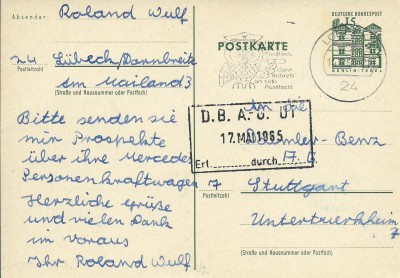 Absender:
Roland Wulf
24 Lübeck/Dornbreite
Postleitzahl
Am Mailand 3
(Straße und Hausnummer oder Postfach)
Bitte senden sie
mir Prospekte
über ihre Mercedes
Personenkraftwagen
Herzliche Grüße
und vielen Dank
im voraus
Ihr Roland Wulf
POSTKARTE
DEUTSCHE BUNDESPOST
15
BERLIN-TEGEL
24
D.B.A.G. 01
17. MAI 1965
Erl. durch
An die
Daimler-Benz
A.G.
7 Stuttgart
Postleitzahl
Untertürkheim
(Straße und Hausnummer oder Postfach)